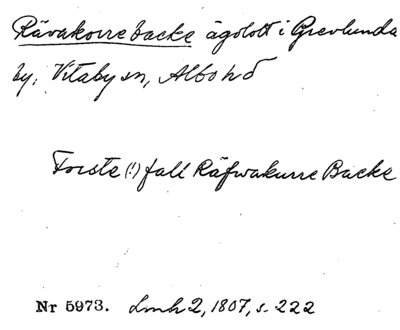 Rävakorre backe ägolott i Grevlunda
by, Vitaby sn, Albo hd
Forste (!) fall Räfwakurre Backe
Nr 5973. Lmh 2, 1807, s. 222